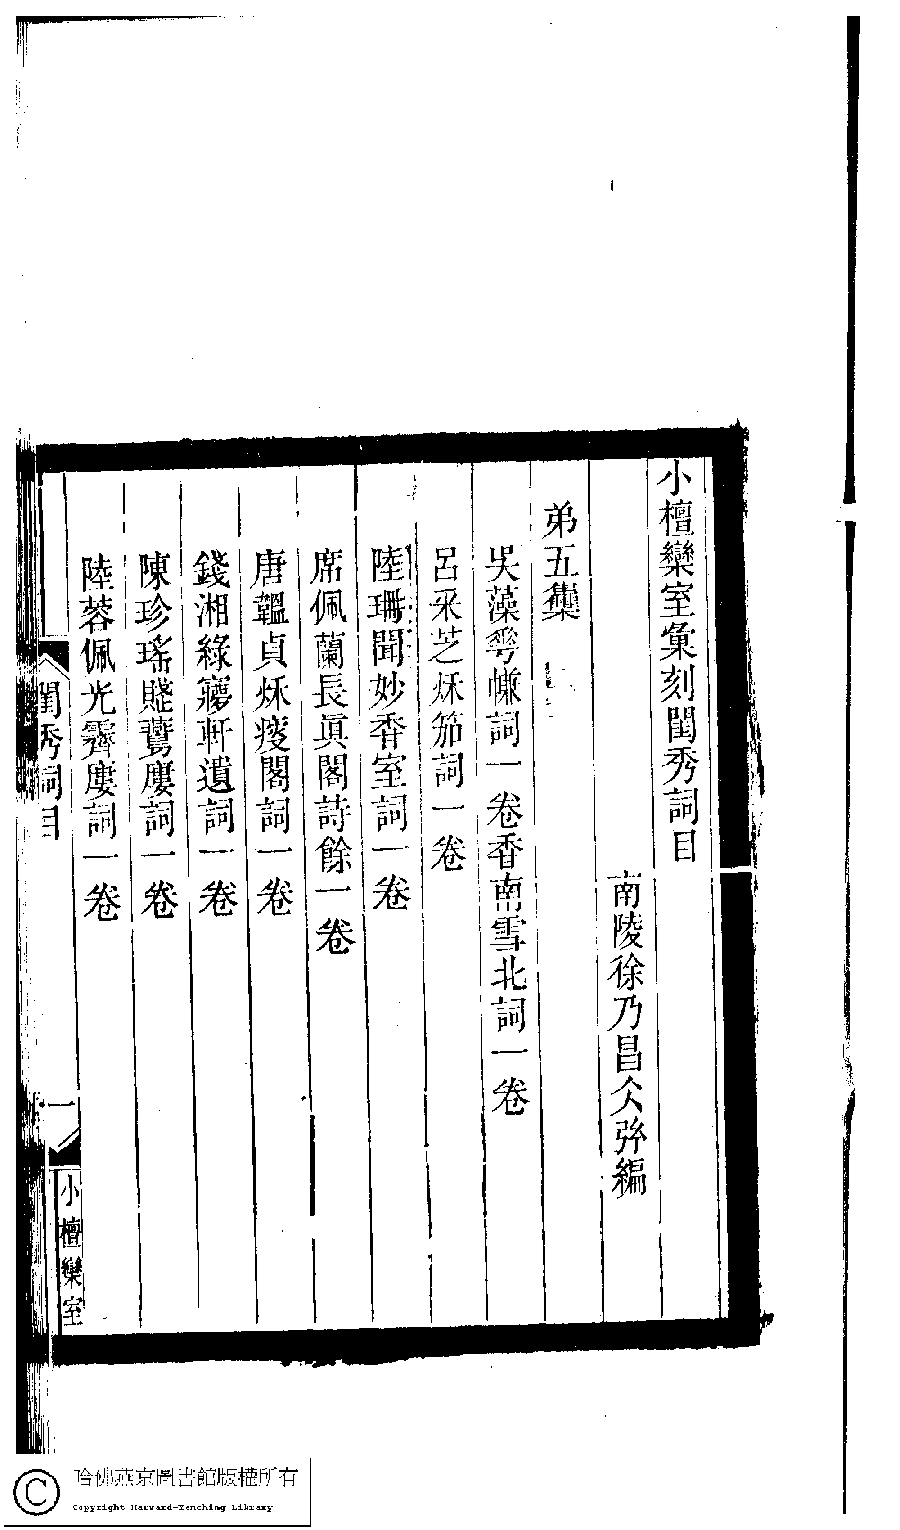 小檀欒室彙刻閨秀詞目
南陵徐乃昌仌弜編
弟五集
吳藻雩慊詞一卷香南雪北詞一卷
呂采芝秌笳詞一卷
陸珊聞妙香室詞一卷
席佩蘭長眞閣詩餘一卷
唐韞貞秌瘦閣詞一卷
錢湘綠窻軒遺詞一卷
陳珍瑤賸鷖廔詞一卷
陸蓉佩光霽廔詞一卷
閨秀詞目
一
小檀欒室
哈佛燕京圖書館版權所有
Copyright Harvard-Yenching Library